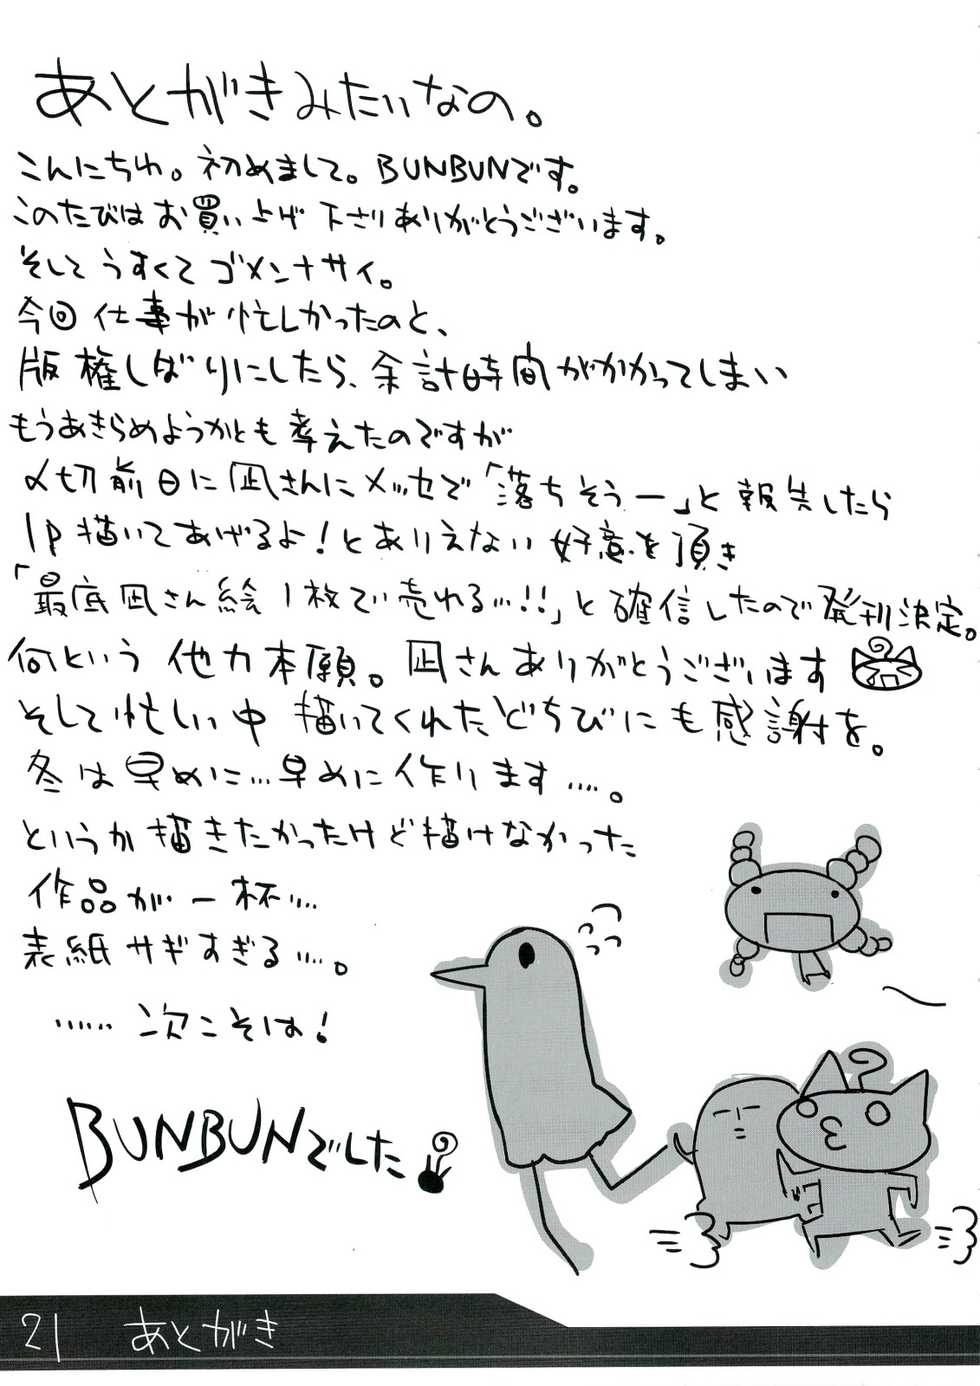 あとがきみたいなの。
こんにちわ。初めまして。BUNBUNです。
このたびはお買い上げ下さりありがとうございます。
そしてうすくてゴメンナサイ。
今回仕事が忙しかったのと、
版権しばりにしたら、余計時間がかかってしまい
もうあきらめようかとも考えたのですが
〆切前日に凪さんにメッセで「落ちそうー」と報告したら
1P描いてあげるよ!とありえない好意を頂き
「最底凪さん絵1枚で売れる…!!」と確信したので発刊決定。
何という他力本願。凪さんありがとうございます
そして忙しい中描いてくれたどちびにも感謝を。
冬は早めに…早めに作ります…。
というか描きたかったけど描けなかった
作品が一杯…
表紙サギすぎる…。
……次こそは!
BUNBUNでした
21 あとがき